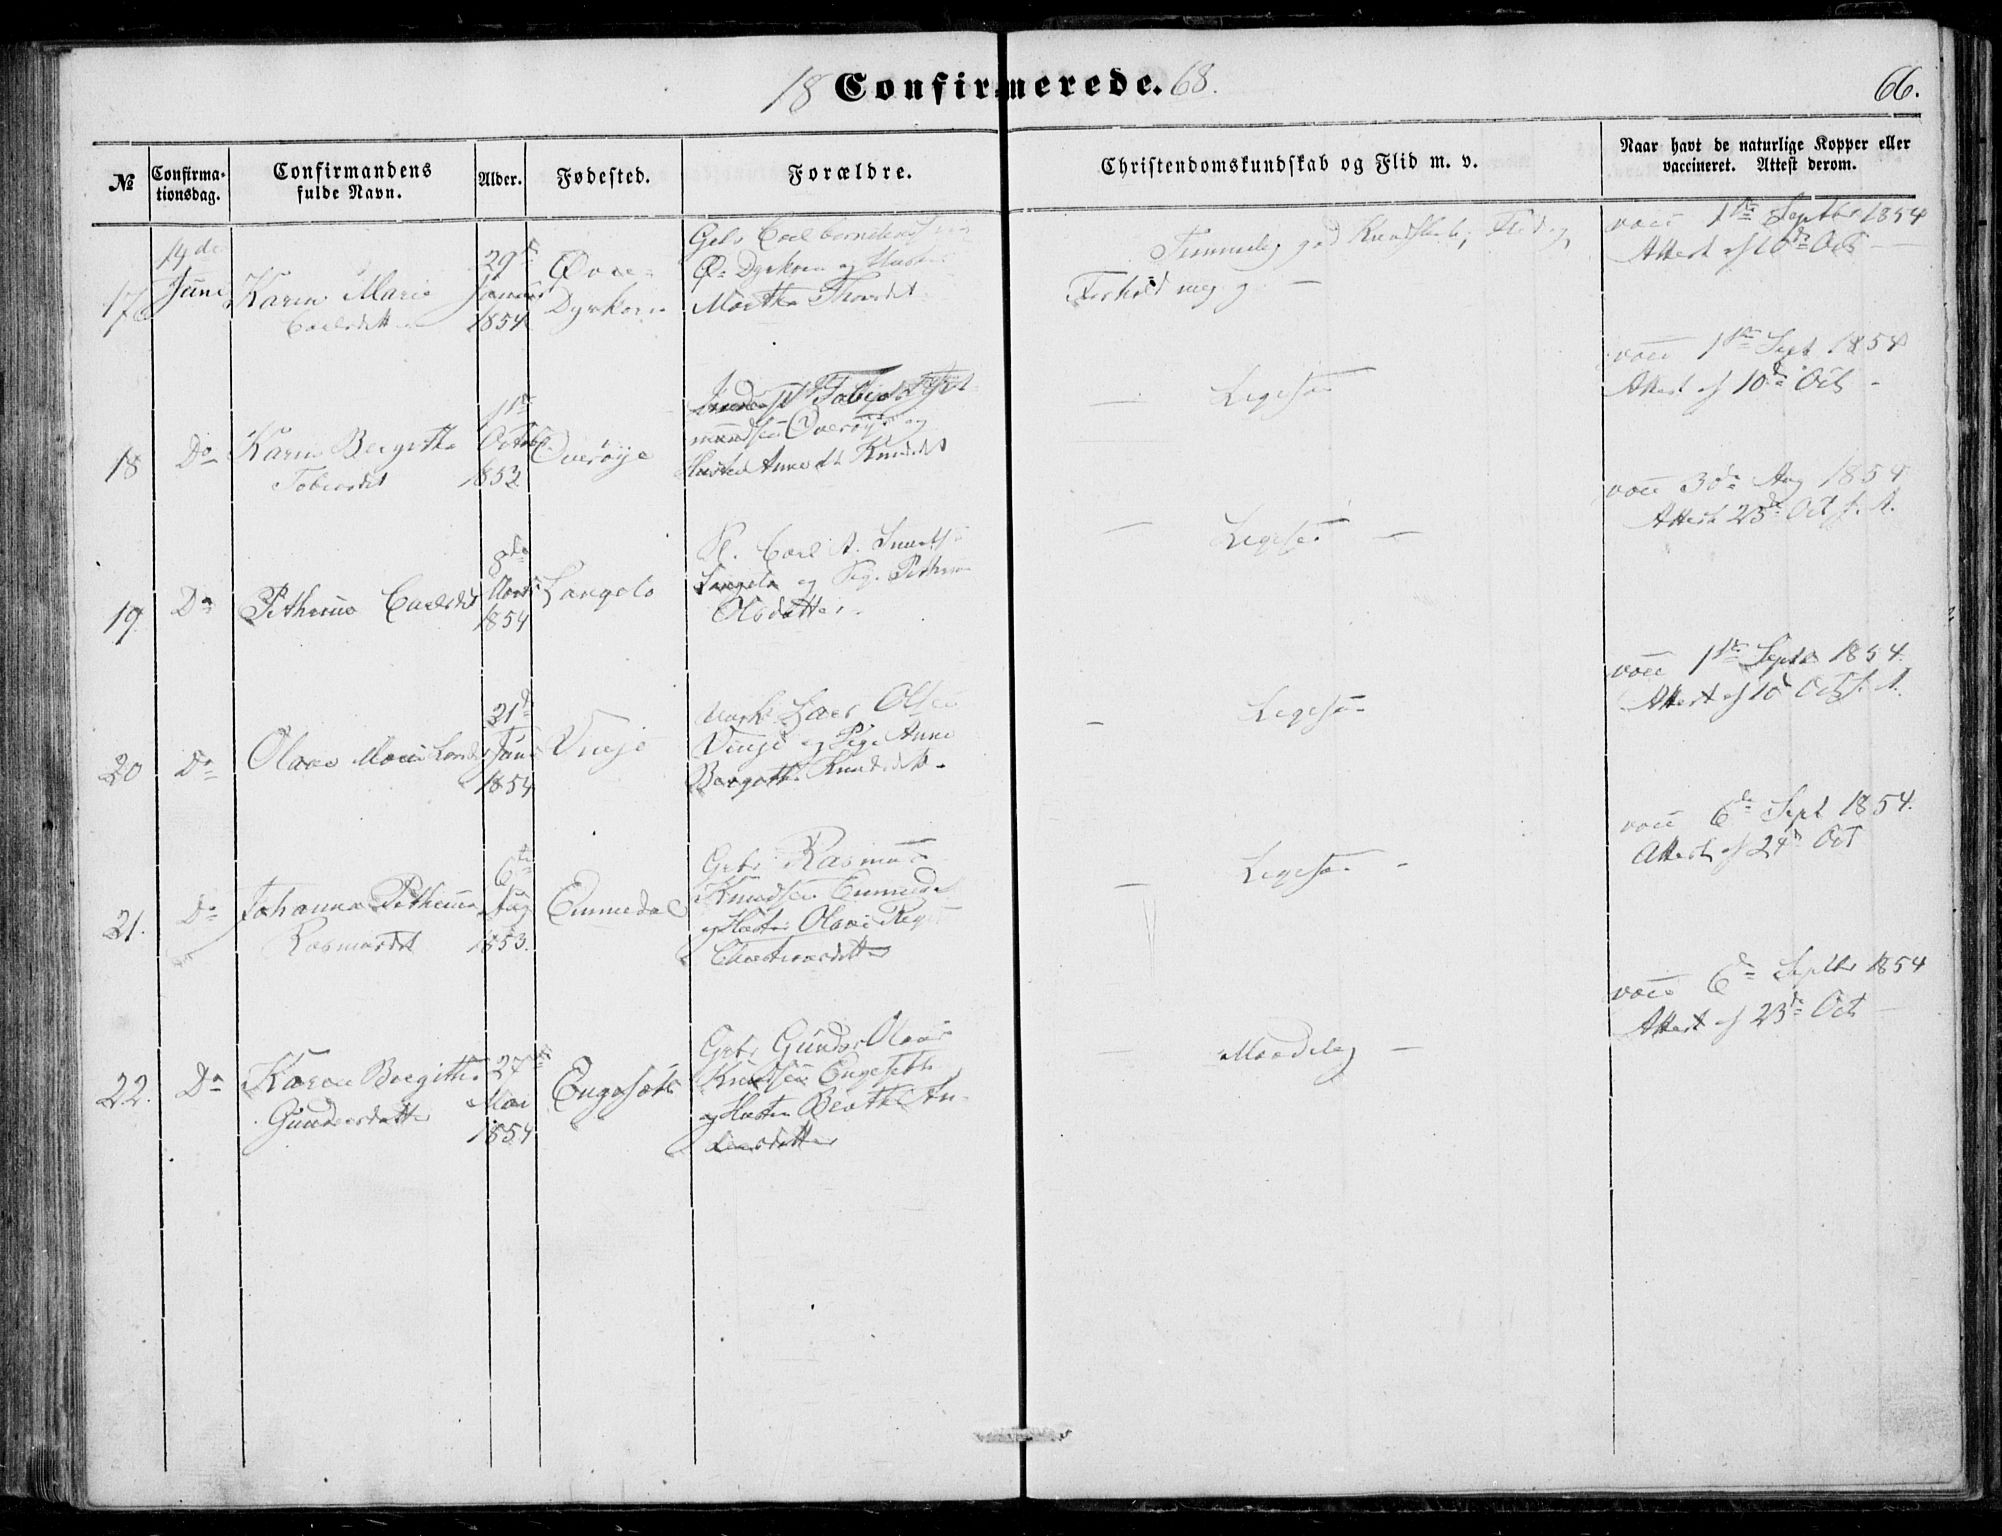 18 Confirmerede. 68.
66.
№
Confirma-
tionsdag.
Confirmandens
fulde Navn.
Alder.
Fødested.
Forældre.
Christendomskundskab og Flid m. v.
Naar havt de naturlige Kopper eller
vaccineret. Attest derom.
17
14de
June
Karen Marie
29
Januar
1854
Øvre-
Dyrkorn
Gbr. Carl
Ø. Dyrkorn og Hustru
Marthe
Temmelig god Kundskab, Flid og
Forhold meg. g.
vacc 1ste Septbr 1854
Attest af 10de Oct
18
Do
Karen Bergithe
Tobiasdt
1ste
Octob
1853
Overøye
Overøye og
Hustru Anne Knudsdt
Ligesaa
vacc 1ste Sept 1854
Attest af 10de Oct
19
Do
Pethrine Carlsdt
8de
Marts
1854
Langelo
Carl A.
Langelo og Pig. Pethrine
Olsdatter
Ligesaa
vacc 30te Aug 1854
Attest 23de Oct s. A.
20
Do
Olave Marie
21de
Juni
1854
Vinje
Lars Olsen
Vinje og Pige Anne
Bergithe Knudsdt
Ligesaa
vacc 1ste Septb 1854.
Attest af 10d Oct s. A.
21.
Do
Johanna Pethrine
Rasmusdt
6te
Aug
1853.
Emmedal
Gbr Rasmus
Knudsen Emmedal
og Hustru Olave
Ligesaa
vacc 6te Sept 1854.
Attest af 24d Oct
22.
Do
Karen Bergithe
Gundersdatter
27de
Mai
1854
Engesæth
Gbr Gunder Olaus
Knudsen Engeseth
og Hustru Berthe An-
dersdatter
Maadelig
vacc 6te Septbr 1854
Attest af 23de Oct